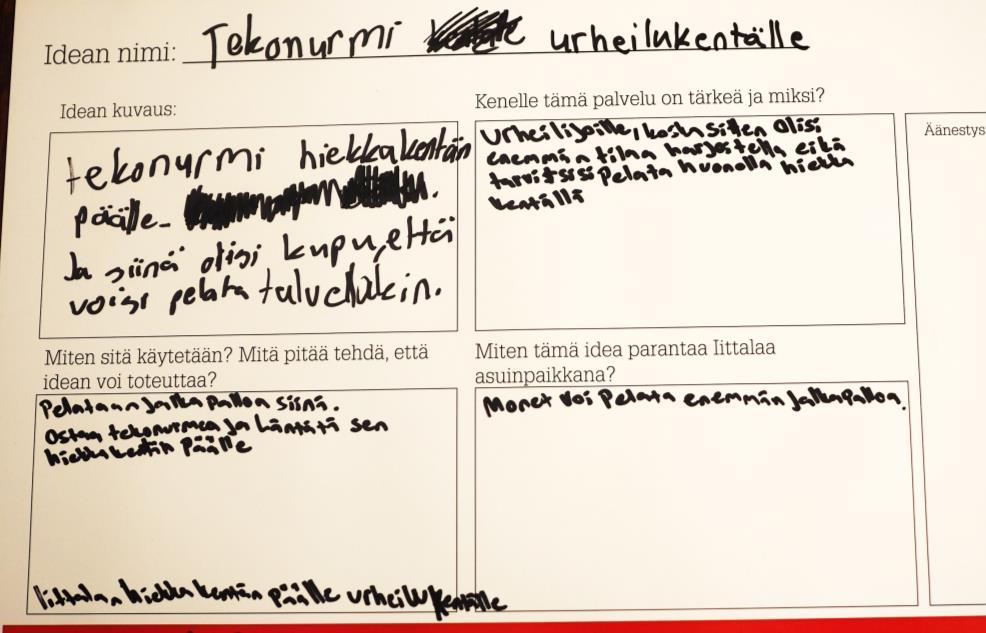 Idean nimi: Tekonurmi urheilukentälle
Idean kuvaus:
tekonurmi hiekkakentän
päälle.
Ja siinä olisi kupu, että
voisi pelata talvellakin.
Kenelle tämä palvelu on tärkeä ja miksi?
Urheilijoille, koska sitten olisi
enemmän tilaa harjoitella eikä
tarvitsisi pelata huonolla hiekka
kentällä
Äänestys
Miten sitä käytetään? Mitä pitää tehdä, että
idean voi toteuttaa?
Pelataan jalkapalloa siinä.
Ostaa tekonurmea ja sen
hiekkakentän päälle
Iittalan hiekkakentän päälle urheilukentälle
Miten tämä idea parantaa Iittalaa
asuinpaikkana?
Monet voi pelata enemmän jalkapalloa.